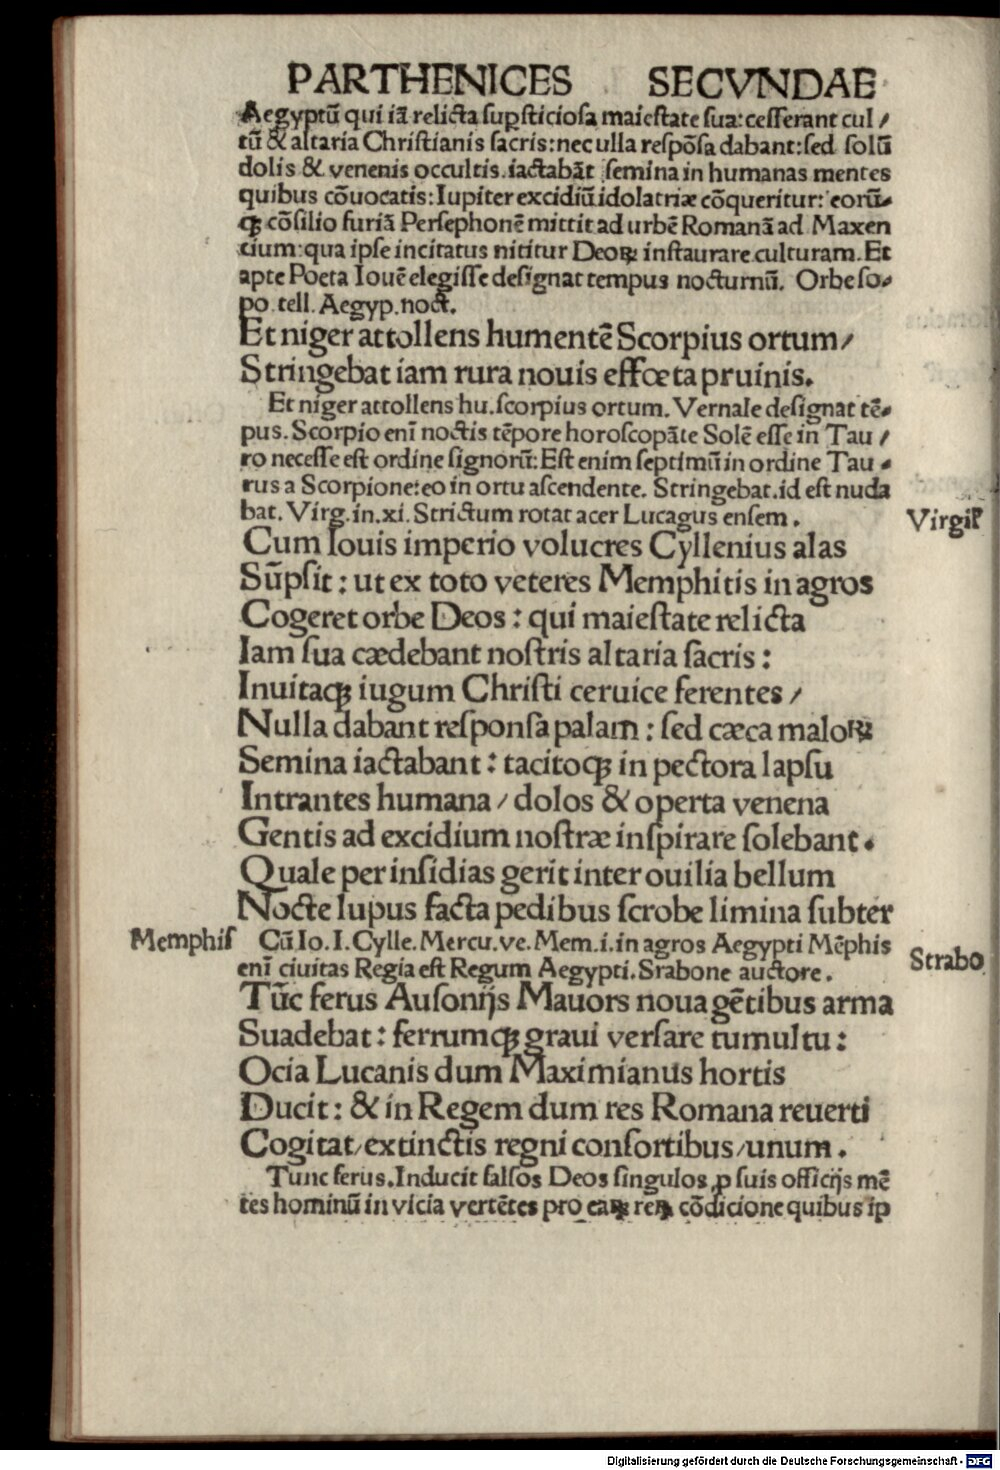 PARTHENICES SECVNDAE
Aegyptū qui iā relicta suꝑsticiosa maiestate sua: cesserant cul/
tū & altaria Christianis sacris: nec ulla respōsa dabant: sed solū
dolis & venenis occultis iactabāt semina in humanas mentes
quibus cōuocatis: Iupiter excidiū idolatriæ cōqueritur: eorū-
qꝫ cōsilio furiā Persephonē mittit ad urbē Romanā ad Maxen
cium: qua ipse incitatus nititur Deoꝝ instaurare culturam. Et
apte Poeta Iouē elegisse designat tempus nocturnū. Orbe so-
po tell. Aegyp. noct.
Et niger attollens humentē Scorpius ortum/
Stringebat iam rura nouis effœta pruinis.
Et niger attollens hu. scorpius ortum. Vernale designat tē-
pus. Scorpio enī noctis tēpore horoscopāte Solē esse in Tau/
ro necesse est ordine signorū: Est enim septimū in ordine Tau-
rus a Scorpione: eo in ortu ascendente. Stringebat. id est nuda
bat. Virg. in. xi. Strictum rotat acer Lucagus ensem.
Virgiꝉ
Cum Iouis imperio volucres Cyllenius alas
Sūpsit: ut ex toto veteres Memphitis in agros
Cogeret orbe Deos: qui maiestate relicta
Iam sua cædebant nostris altaria sacris:
Inuitaqꝫ iugum Christi ceruice ferentes/
Nulla dabant responsa palam: sed cæca maloꝝ
Semina iactabant: tacitoqꝫ in pectora lapsu
Intrantes humana/ dolos & operta venena
Gentis ad excidium nostræ inspirare solebant.
Quale per insidias gerit inter ouilia bellum
Nocte lupus facta pedibus scrobe limina subter
Memphis Cū Io. I. Cylle. Mercu. ve. Mem. i. in agros Aegypti Mēphis
enī ciuitas Regia est Regum Aegypti. Srabone auctore.
Strabo
Tūc ferus Ausonijs Mauors noua gētibus arma
Suadebat: ferrumqꝫ graui versare tumultu:
Ocia Lucanis dum Maximianus hortis
Ducit: & in Regem dum res Romana reuerti
Cogitat/ extinctis regni consortibus/ unum.
Tunc ferus. Inducit falsos Deos singulos ꝓ suis officijs mē
tes hominū in vicia vertētes pro eaꝝ reꝝ cōdicione quibus ip
Digitalisierung gefördert durch die Deutsche Forschungsgemeinschaft - DFG